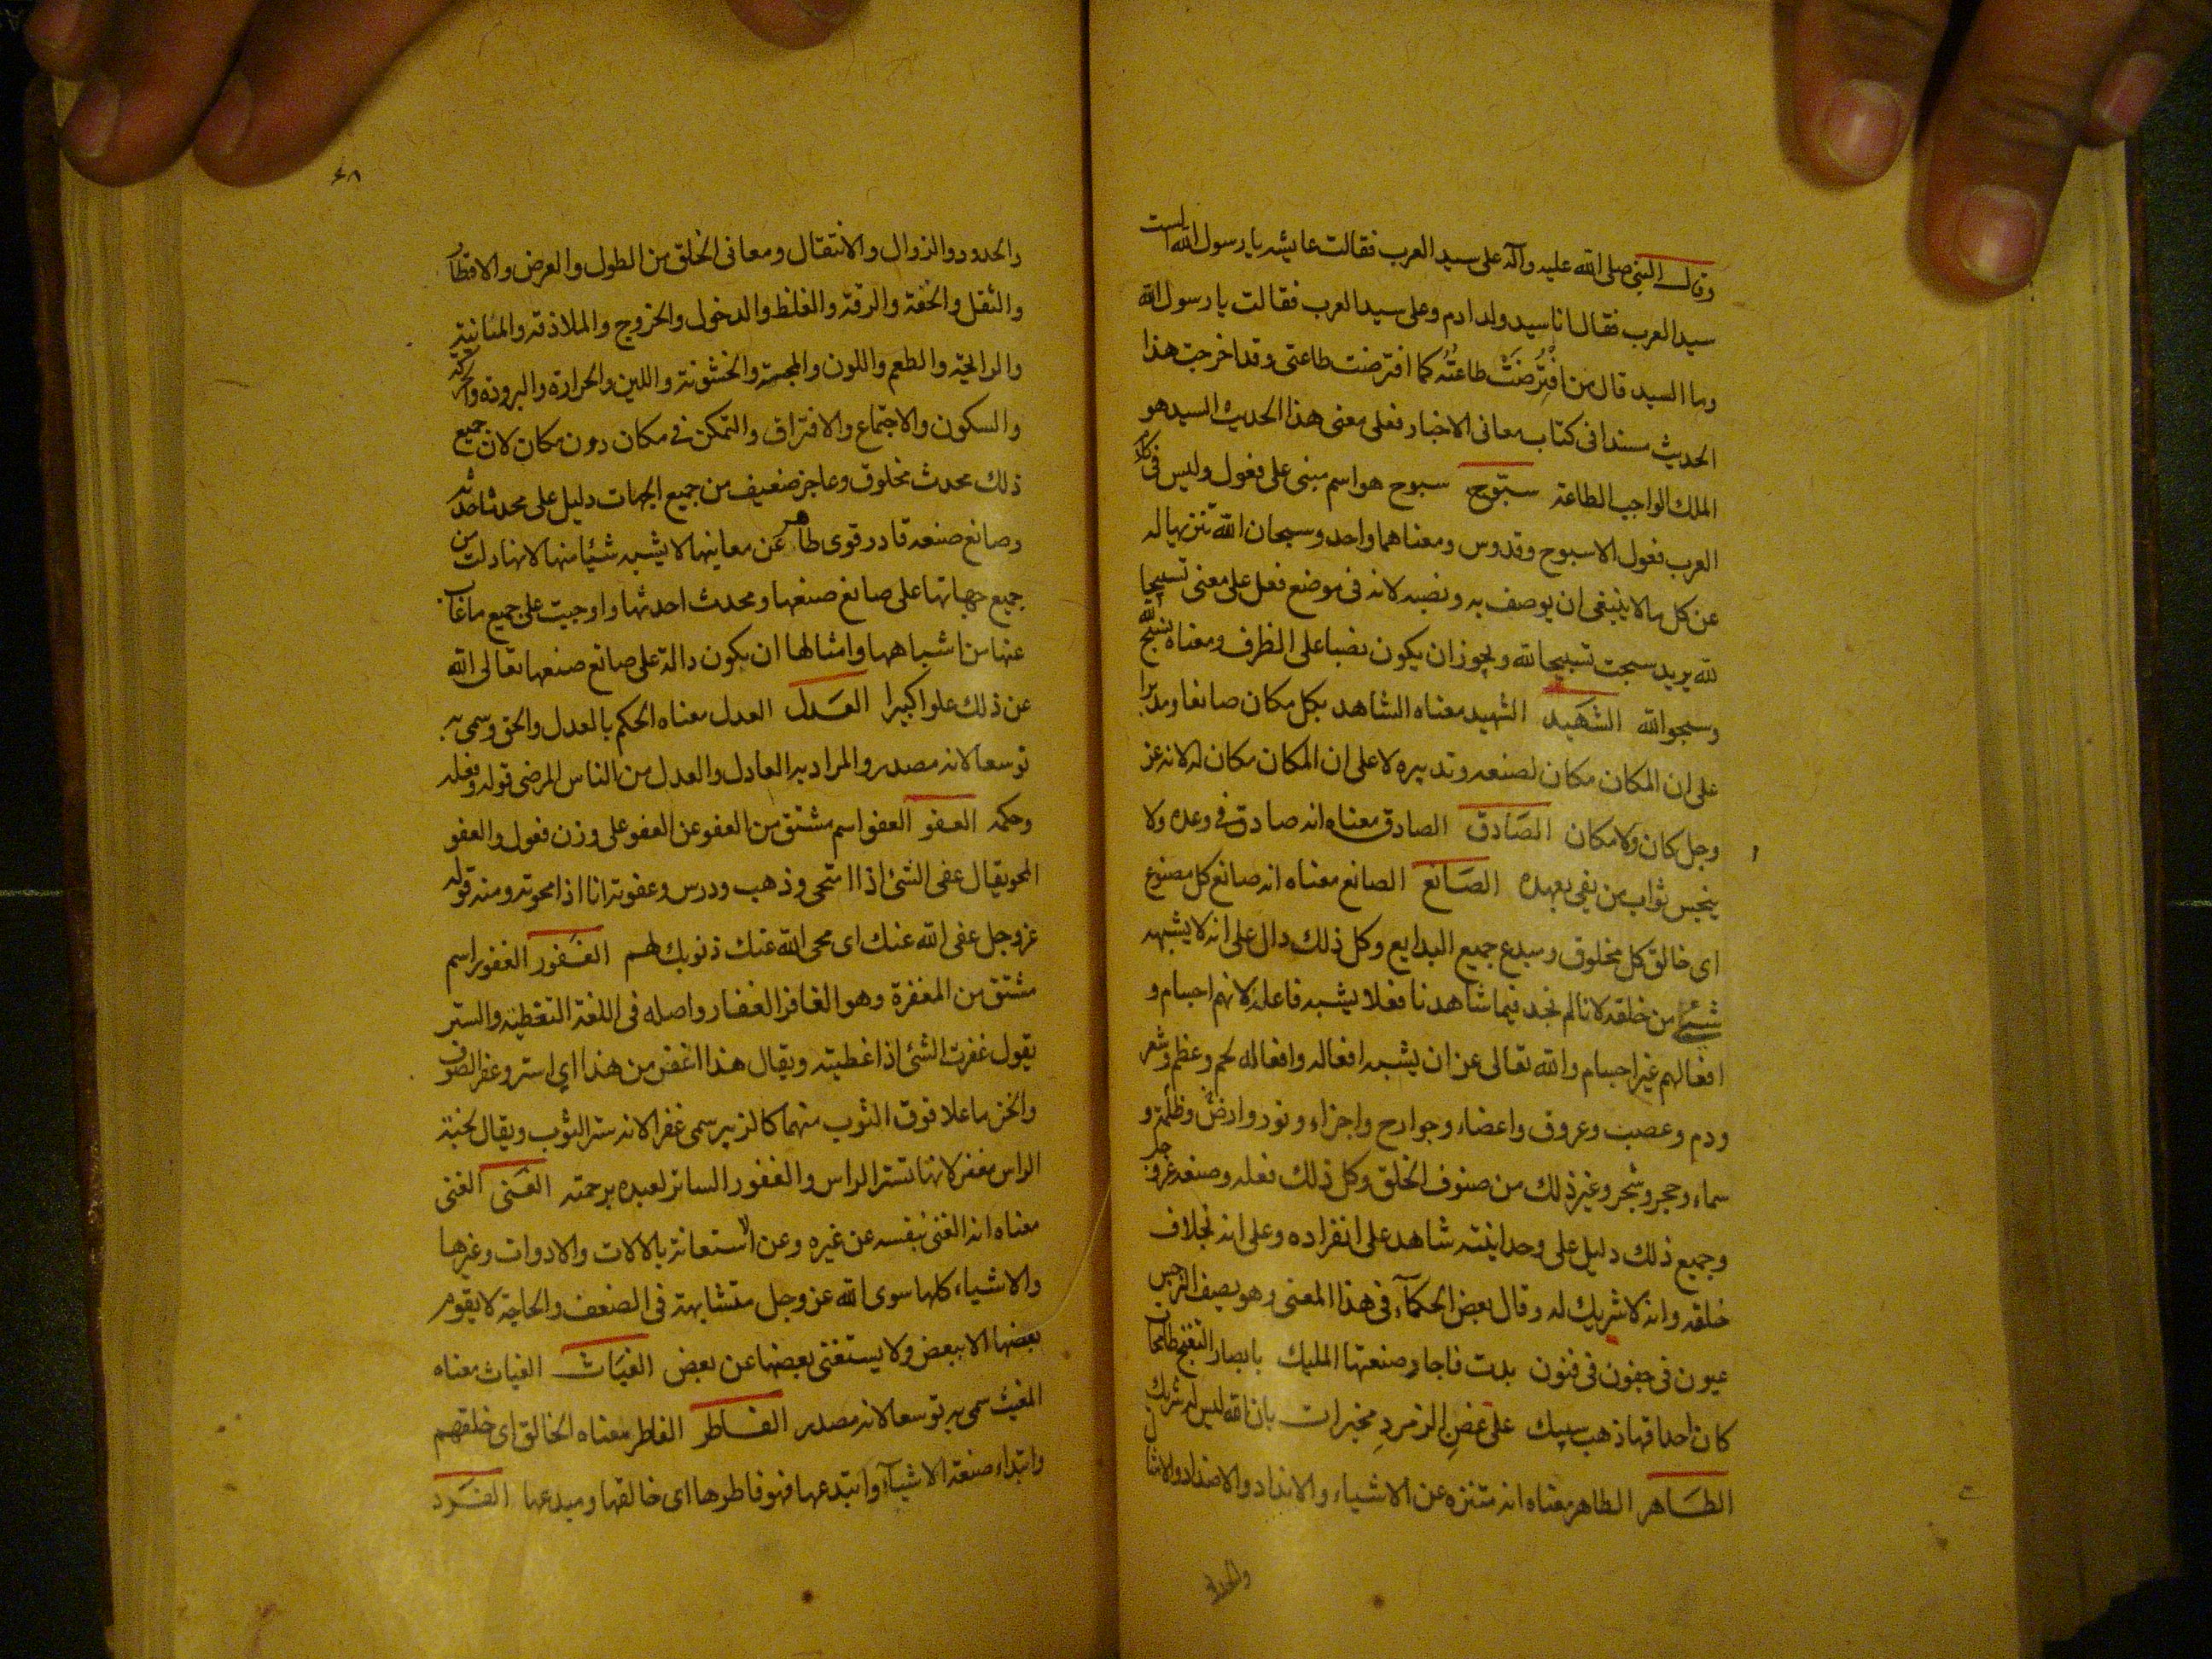 وقال النبی صلی الله علیه وآله علی سید العرب فقالت عایشه یا رسول الله الست
سید العرب فقال انا سید ولد ادم وعلی سید العرب فقالت یا رسول الله
وما السید قال من افْتُرِضَتْ طاعتُه کما افترضت طاعتی وقد اخرجت هذا
الحدیث مسندا فی کتاب معانی الاخبار فعلی معنی هذا الحدیث السید هو
الملک الواجب الطاعة سبّوح سبوح هو اسم مبنی علی فعول ولیس فی کلام
العرب فعول الا سبوح وقدوس ومعناهما واحد وسبحان الله تنزیها له
عن کل ما لا ینبغی ان یوصف به ونصبه لانه فی موضع فعل علی معنی تسبیحا
لله یرید سبحت تسبیحا لله ویجوز ان یکون نصبا علی الظرف ومعناه نسبح لله
وسبحوا لله الشَهید الشهید معناه الشاهد بکل مکان صانعا ومدبرا
علی ان المکان مکان لصنعه وتدبیره لا علی ان المکان مکان له لانه عز
وجل کان ولا مکان الصَادق الصادق معناه انه صادق فی وعده ولا
یبخس ثواب من یفی بعهده الصَانع الصانع معناه انه صانع کل مصنوع
ای خالق کل مخلوق ومبدع جمیع البدایع وکل ذلک دال علی انه لا یشبهه
شیئ من خلقه لانا لم نجد فیما شاهدنا فعلا یشبه فاعله لانهم اجسام و
افعالهم غیر اجسام والله تعالی عن ان یشبه افعاله وافعاله لحم وعظم وشعر
ودم وعصب وعروق واعضاء وجوارح واجزاء ونور وارض وظلمة و
سماء وحجر وشجر وغیر ذلک من صنوف الخلق وکل ذلک فعله وصنعه عز وجل
وجمیع ذلک دلیل علی وحدانیته شاهد علی انفراده وعلی انه بخلاف
خلقه وانه لا شریک له وقال بعض الحکمآء فی هذا المعنی وهو یصف النرجس
عیون فی جفون فی فنون بدت فاجاد صنعتها الملیک بابصار التغنج طامحات
کان احداقها ذهب سبیک علی غضِ الزمردِ مخبرات بان الله لیس له شریک
الطَاهر الطاهر معناه انه متنزه عن الاشیاء والانداد والاضداد والامثال
والحدود
۶۸
والحدود والزوال والانتقال ومعانی الخلق من الطول والعرض والاقطار
والثقل والخفة والرقة والغلظ والدخول والخروج والملازقة والمباینة
والرایحة والطعم واللون والمجسة والخشونة واللین والحرارة والبرودة والحرکة
والسکون والاجتماع والافتراق والتمکن فی مکان دون مکان لان جمیع
ذلک محدث مخلوق وعاجز ضعیف من جمیع الجهات دلیل علی محدث احدثه
وصانع صنعه قادر قوی طاهر عن معانیها لا یشبه شیئا منها لانها دلت من
جمیع جهاتها علی صانع صنعها ومحدث احدثها واوجبت علی جمیع ما غاب
عنها من اشباهها وامثالها ان یکون دالة علی صانع صنعها تعالی الله
عن ذلک علوا کبیرا العَدل العدل معناه الحکم بالعدل والحق وسمی به
توسعا لانه مصدر والمراد به العادل والعدل من الناس المرضی قوله وفعله
وحکمه العفو العفو اسم مشتق من العفو عن العفو علی وزن فعول والعفو
المحو یقال عفی الشئ اذا امتحی وذهب ودرس وعفوته انا اذا محوته ومنه قوله
عز وجل عفی الله عنک ای محی الله عنک ذنوبک لهم الغَفور الغفور اسم
مشتق من المغفرة وهو الغافر الغفار واصله فی اللغة التغطیة والستر
یقول غفرت الشئ اذا غطیته ویقال هذا اغفر من هذا ای استر وغفر الصوف
والخز ما علا فوق الثوب منهما کالزئبر سمی غفرا لانه ستر الثوب ویقال لجنة
الراس مغفر لانها تستر الراس والغفور الساتر لعبده برحمته الغَنی الغنی
معناه انه الغنی بنفسه عن غیره وعن الاستعانة بالالات والادوات وغیرها
والاشیاء کلها سوی الله عز وجل متشابهة فی الضعف والحاجة لا یقوم
بعضها الا ببعض ولا یستغنی بعضها عن بعض الغیَاث الغیاث معناه
المغیث سمی به توسعا لانه مصدر الفَاطر الفاطر معناه الخالق ای خلقهم
وابتداء صنعة الاشیآء وابتدعها فهو فاطرها ای خالقها ومبدعها الفَرد